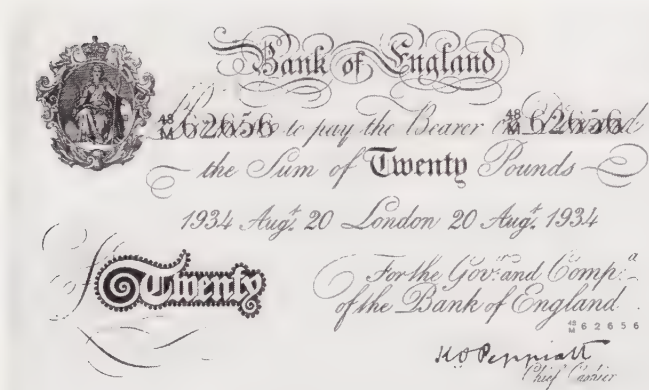 Bank of England
48 M 62656 to pay the Bearer 48 M 62656
the Sum of Twenty Pounds
1934 Augt. 20 London 20 Augt. 1934
Twenty
For the Govr. and Compa.
of the Bank of England.
48 M 62656
K.O. Peppiatt
Chief Cashier